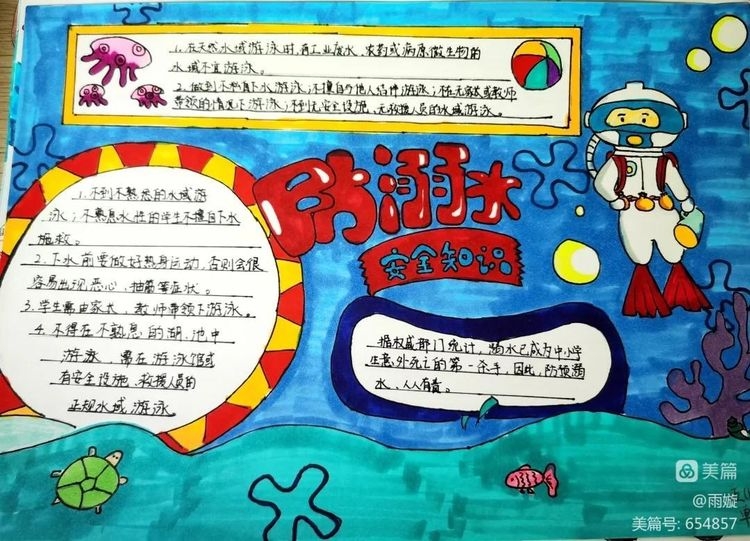 1. 在天然水域游泳时,有工业废水、农药或病原微生物的
水域不宜游泳。
2. 做到不私自下水游泳;不擅自与他人结伴游泳;不在无家长或教师
带领的情况下游泳;不到无安全设施、无救援人员的水域游泳。
防溺水
安全知识
1. 不到不熟悉的水域游
泳;不熟悉水性的学生不擅自下水
施救。
2. 下水前要做好热身运动,否则会很
容易出现恶心、抽筋等症状。
3. 学生需由家长、教师带领下游泳。
4. 不得在不熟悉的湖、池中
游泳,需在游泳馆或
有安全设施、救援人员的
正规水域游泳
据权威部门统计,溺水已成为中小学
生意外死亡的第一杀手,因此,防预溺
水,人人有责。
美篇
@雨嫙
美篇号: 654857